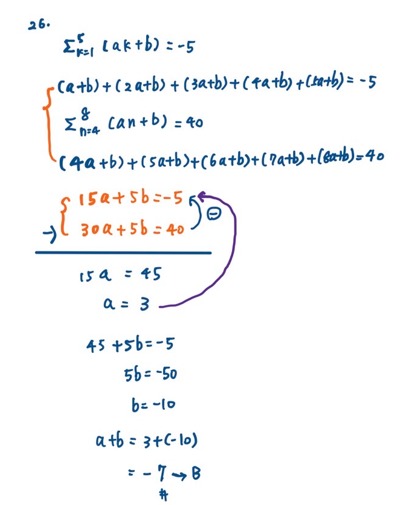 26.
Σ⁵ₖ₌₁ (ak+b) = -5
(a+b)+(2a+b)+(3a+b)+(4a+b)+(5a+b)= -5
Σ⁸ₙ₌₄ (an+b) = 40
(4a+b)+(5a+b)+(6a+b)+(7a+b)+(8a+b)=40
15a+5b=-5
→ 30a+5b=40 ⊖
15a = 45
a = 3
45+5b=-5
5b=-50
b=-10
a+b = 3+(-10)
= -7 → B
#